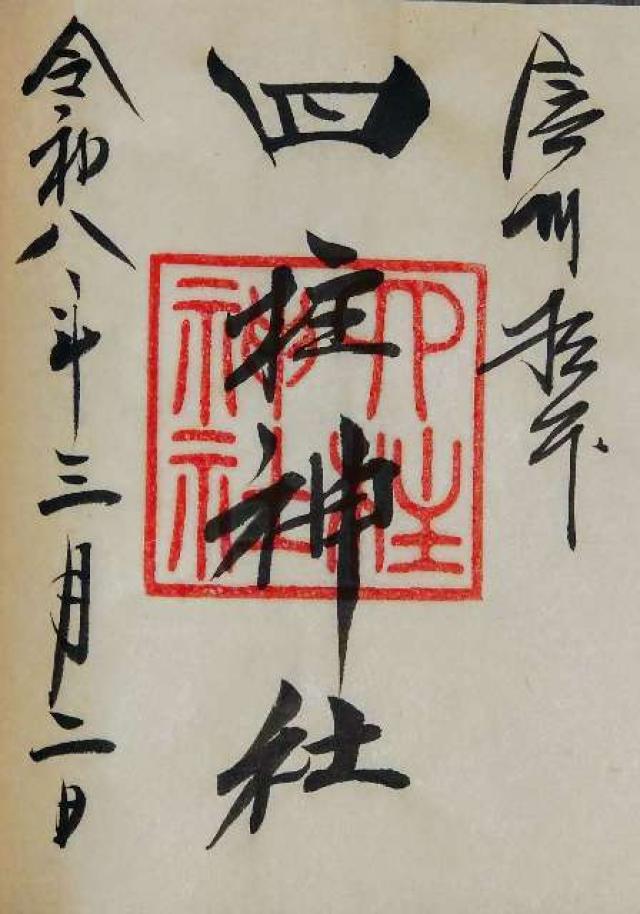 信州松本
四柱神社
四柱神社
令和八年三月二日